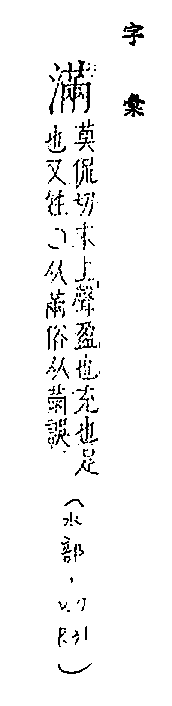 字彙
滿
莫侃切末上聲盈也充也足
也又姓○从㒼俗从𦭝誤
(水部,